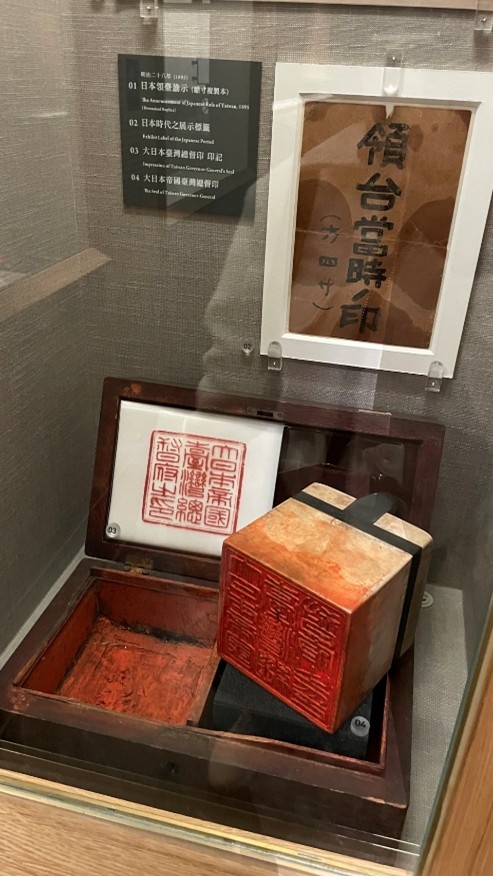 明治二十八年 (1895)
01 日本領臺諭示 (縮寸複製本)
The Announcement of Japanese Rule of Taiwan, 1895
02 日本時代之展示標籤
Exhibit Label of the Japanese Period
03 大日本臺灣總督印 印記
Impression of Taiwan Governor-General's Seal
04 大日本帝國臺灣總督印
The Seal of Taiwan Governor-General
領台當時印
(方四寸)
02
大日本帝國
臺灣總
督府之印
03
04